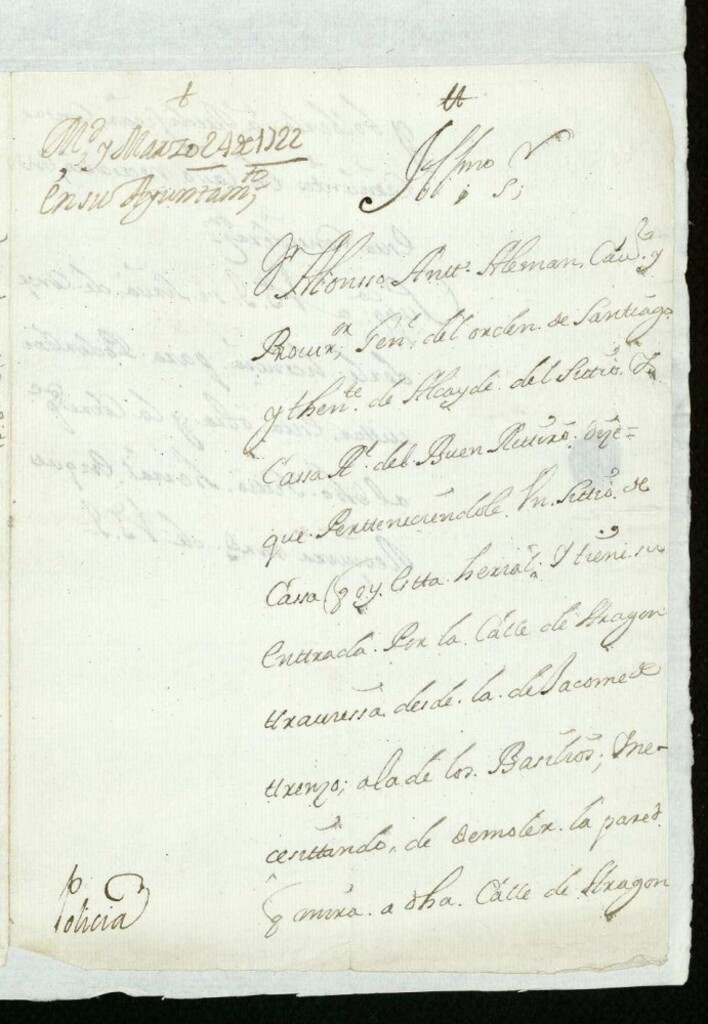 Md y Marzo 24 de 1722
En su Ayuntamto,
Illmo Sr
Dn Alfonsso Antto. Aleman, Cavro. y
Procurr, Genl. del orden. de Santiago
y thente. de Alcayde. del Sittio. Y
Cassa Rl. del Buen Rettiro. dize=
que. Pertteneciendole. Un. Sittio. de
Cassa (q oy. Estta. herial. Y tiene. su
Enttrada. Por la. Calle de Aragon
ttraviessa. desde. la. de Jacome de
ttrenzo; a la de los. Basilios; Y ne-
cesittando. de demoler. la pared.
q mira. a dha. Calle de Aragon
Policia